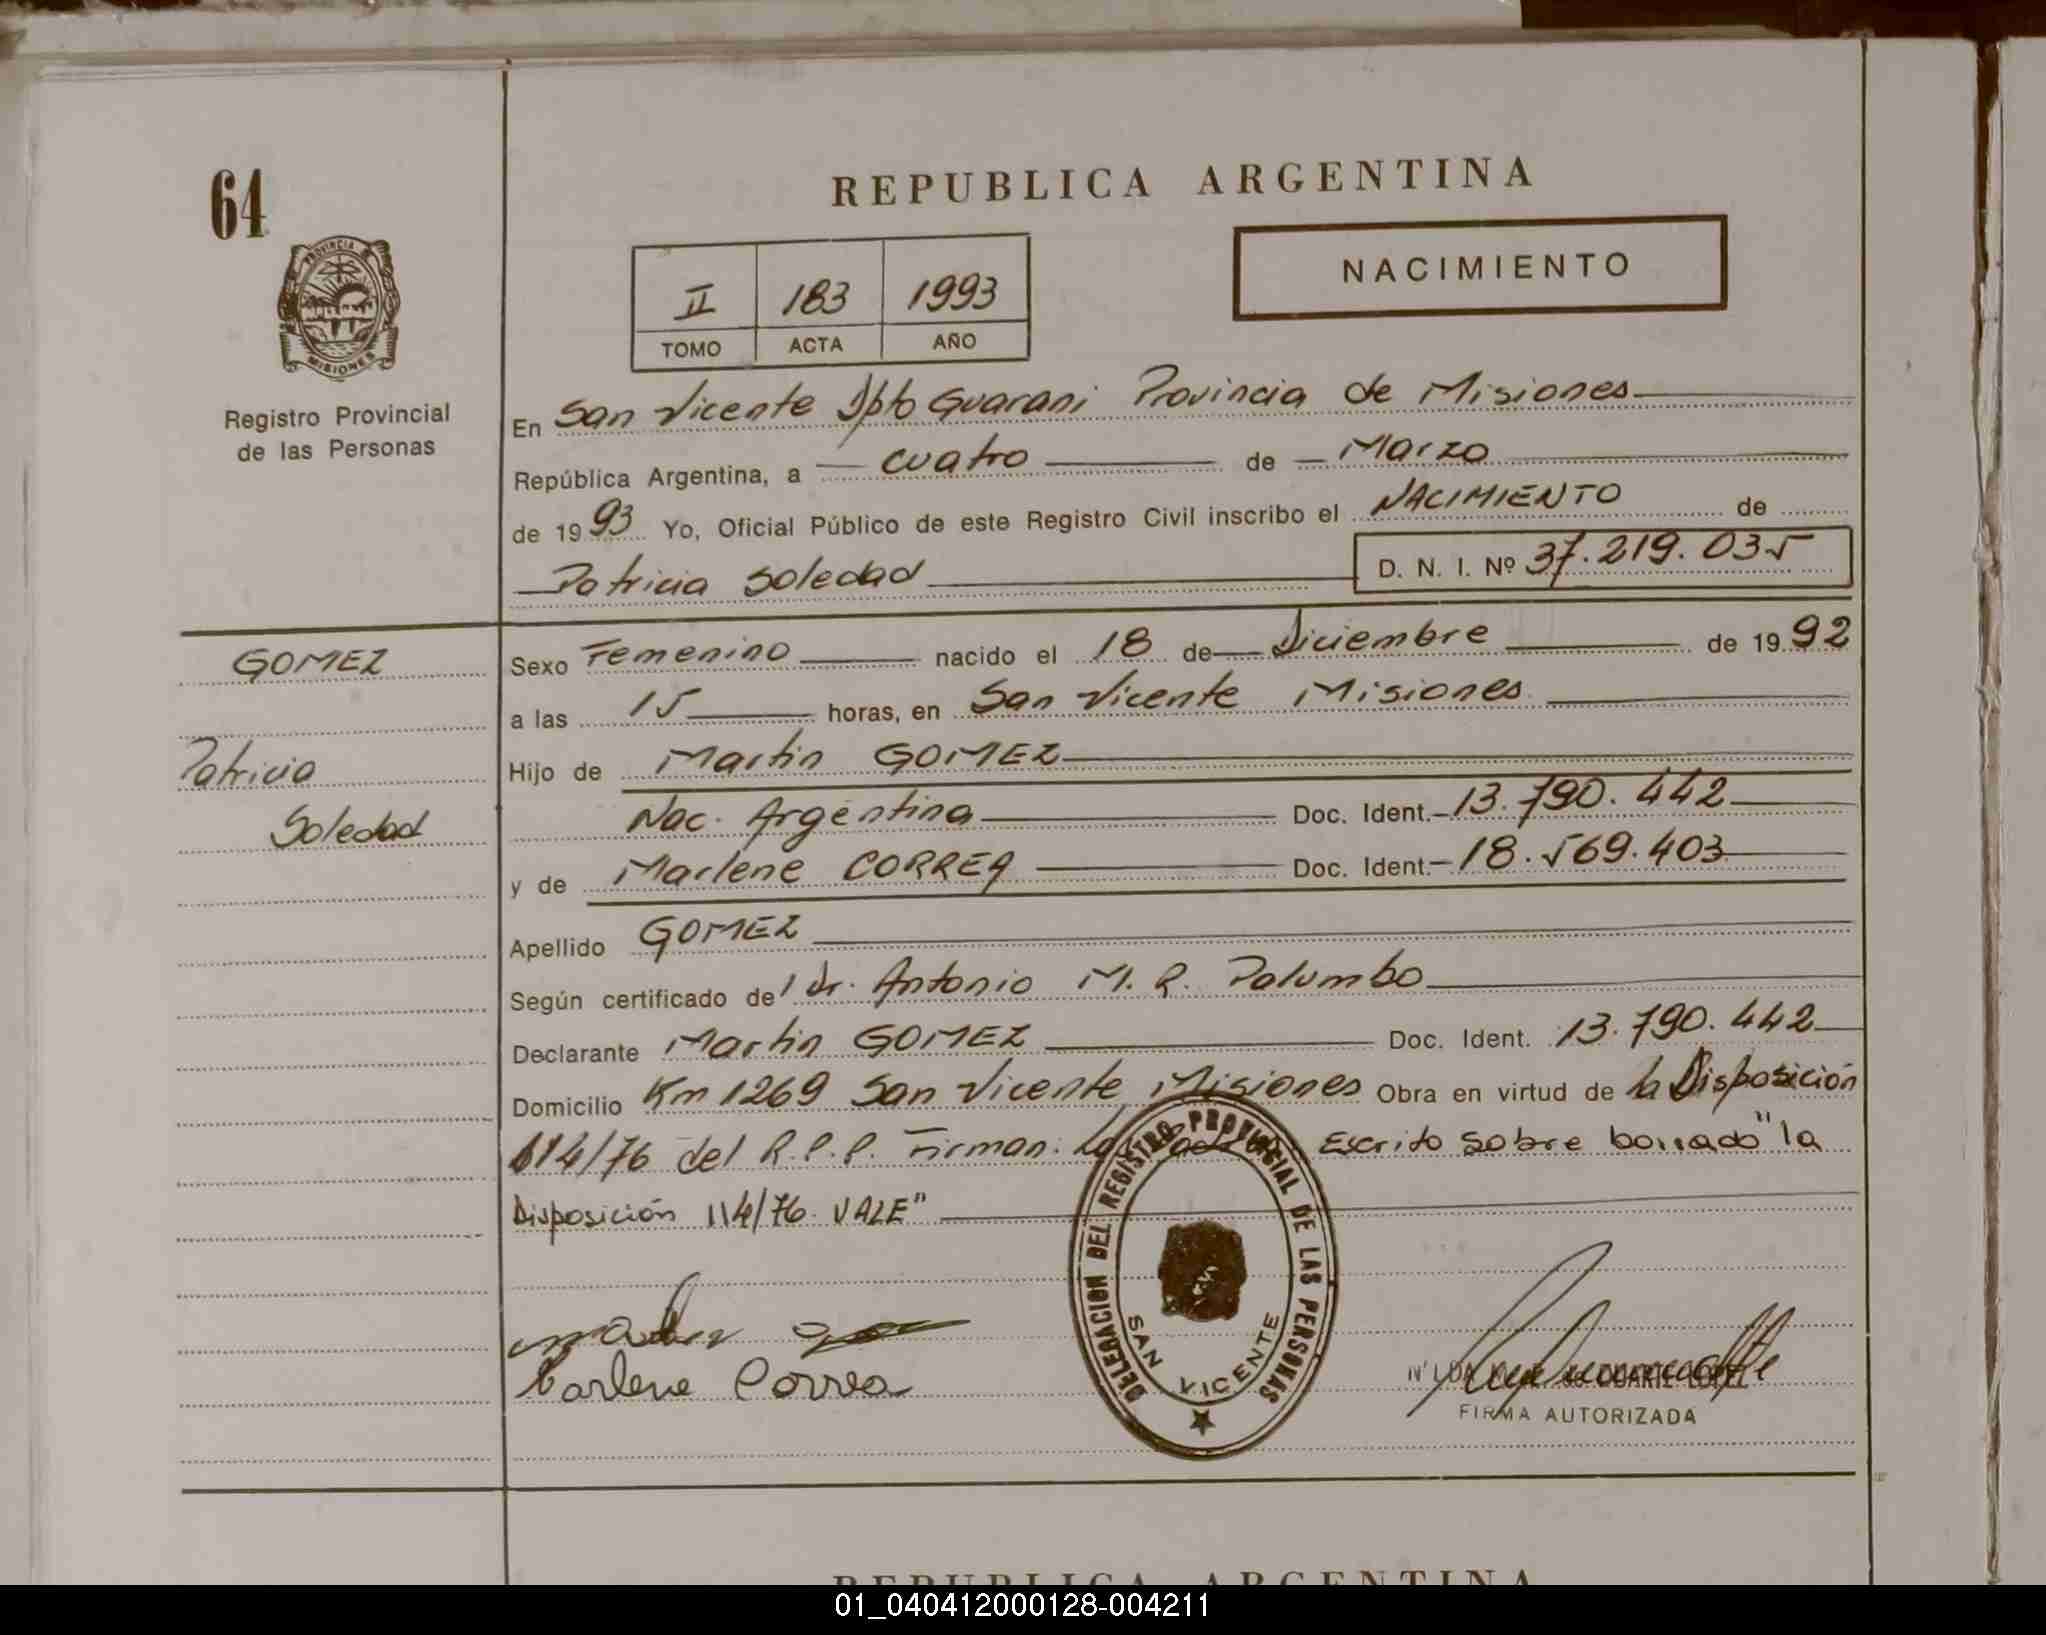 64
PROVINCIA
MISIONES
Registro Provincial
de las Personas
REPUBLICA ARGENTINA
II 183 1993
TOMO ACTA AÑO
NACIMIENTO
En San Vicente Dpto Guarani Provincia de Misiones
República Argentina, a cuatro de Marzo
de 1993 Yo, Oficial Público de este Registro Civil inscribo el NACIMIENTO de
Patricia Soledad D. N. I. Nº 37.219.035
GOMEZ
Patricia
Soledad
Sexo Femenino nacido el 18 de Diciembre de 1992
a las 15 horas, en San Vicente Misiones
Hijo de Martin GOMEZ
Nac. Argentina Doc. Ident. 13.790.442
y de Marlene CORREA Doc. Ident. 18.569.403
Apellido GOMEZ
Según certificado del Dr. Antonio M. R. Palumbo
Declarante Martin GOMEZ Doc. Ident. 13.790.442
Domicilio Km 1269 San Vicente Misiones Obra en virtud de la Disposición
114/76 del R.P.P. Firman: Escrito sobre borrado "la
Disposición 114/76 VALE"
DELEGACION DEL REGISTRO PROVINCIAL DE LAS PERSONAS
SAN VICENTE
Marlene Correa
DUARTE LOPEZ
FIRMA AUTORIZADA
REPUBLICA ARGENTINA
01_040412000128-004211